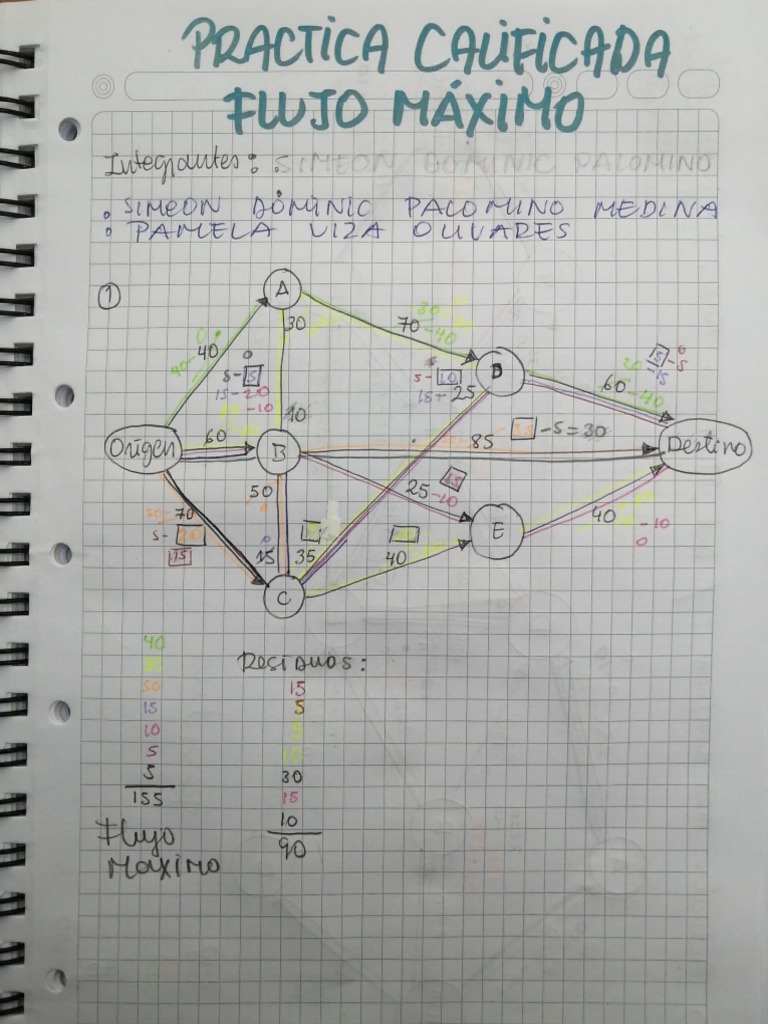 PRACTICA CALIFICADA
FLUJO MÁXIMO
Integrantes: . SIMEON DOMINIC PALOMINO
. SIMEON DOMINIC PALOMINO MEDINA
. PAMELA VIZA OLIVARES
1
A
30
70
-40
40
0
40-
5-5
15-20
-10
10
5-10
15-
25
D
60
-40
5
-5
-15
Origen
60
B
85
-5=30
Destino
50
25-10
15
70
5-
15
15
35
C
40
E
40
-10
0
40
50
15
10
5
5
155
Flujo
Máximo
Residuos:
15
5
5
10
30
15
10
90